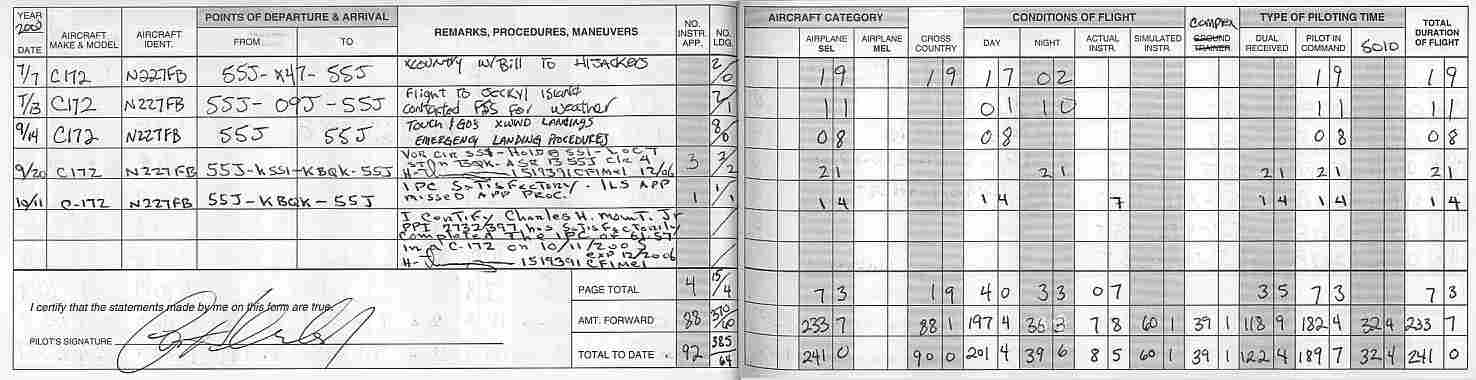 YEAR 2005 DATE AIRCRAFT MAKE & MODEL AIRCRAFT IDENT. POINTS OF DEPARTURE & ARRIVAL FROM TO REMARKS, PROCEDURES, MANEUVERS NO. INSTR. APP. NO. LDG. AIRCRAFT CATEGORY AIRPLANE SEL AIRPLANE MEL CROSS COUNTRY CONDITIONS OF FLIGHT DAY NIGHT ACTUAL INSTR. SIMULATED INSTR. COMPLEX GROUND TRAINER TYPE OF PILOTING TIME DUAL RECEIVED PILOT IN COMMAND SOLO TOTAL DURATION OF FLIGHT
7/7 C172 N227FB 55J-X47-55J XCOUNTRY W/BILL TO HIJACKERS 2/0 1 9 1 9 1 7 0 2 1 9 1 9
7/13 C172 N227FB 55J-09J-55J Flight to Jeckyl Island
contacted FSS for weather 2/1 1 1 0 1 1 0 1 1 1 1
9/14 C172 N227FB 55J 55J Touch & GOs XWND LANDINGS
EMERGENCY LANDING PROCEDURES 8/0 0 8 0 8 0 8 0 8
9/20 C172 N227FB 55J-KSSI-KBQK-55J VOR Cir SSI-Hold @ SSI-LOC
BQK-ASR 13 55J Cir 4
1519391CFIMEI 12/06 3 2 1 2 1 2 1 2 1 2 1
10/11 C-172 N227FB 55J-KBQK-55J IPC SaTisFactory. ILS APP
missed APP Proc. 1 1/1 1 4 1 4 7 1 4 1 4 1 4
I CerTiFy Charles H. Mount. Jr
PPI 2732397 has SaTisFactorily
Completed The IPC of 61.57
In a C-172 on 10/11/2005
exp 12/2006
1519391 CFIMEI
PAGE TOTAL 4 15/4 7 3 1 9 4 0 3 3 0 7 3 5 7 3 7 3
I certify that the statements made by me on this form are true.
AMT. FORWARD 88 370/60 233 7 88 1 197 4 36 3 7 8 60 1 39 1 118 9 182 4 32 4 233 7
PILOT'S SIGNATURE
TOTAL TO DATE 92 385/64 241 0 90 0 201 4 39 6 8 5 60 1 39 1 122 4 189 7 32 4 241 0